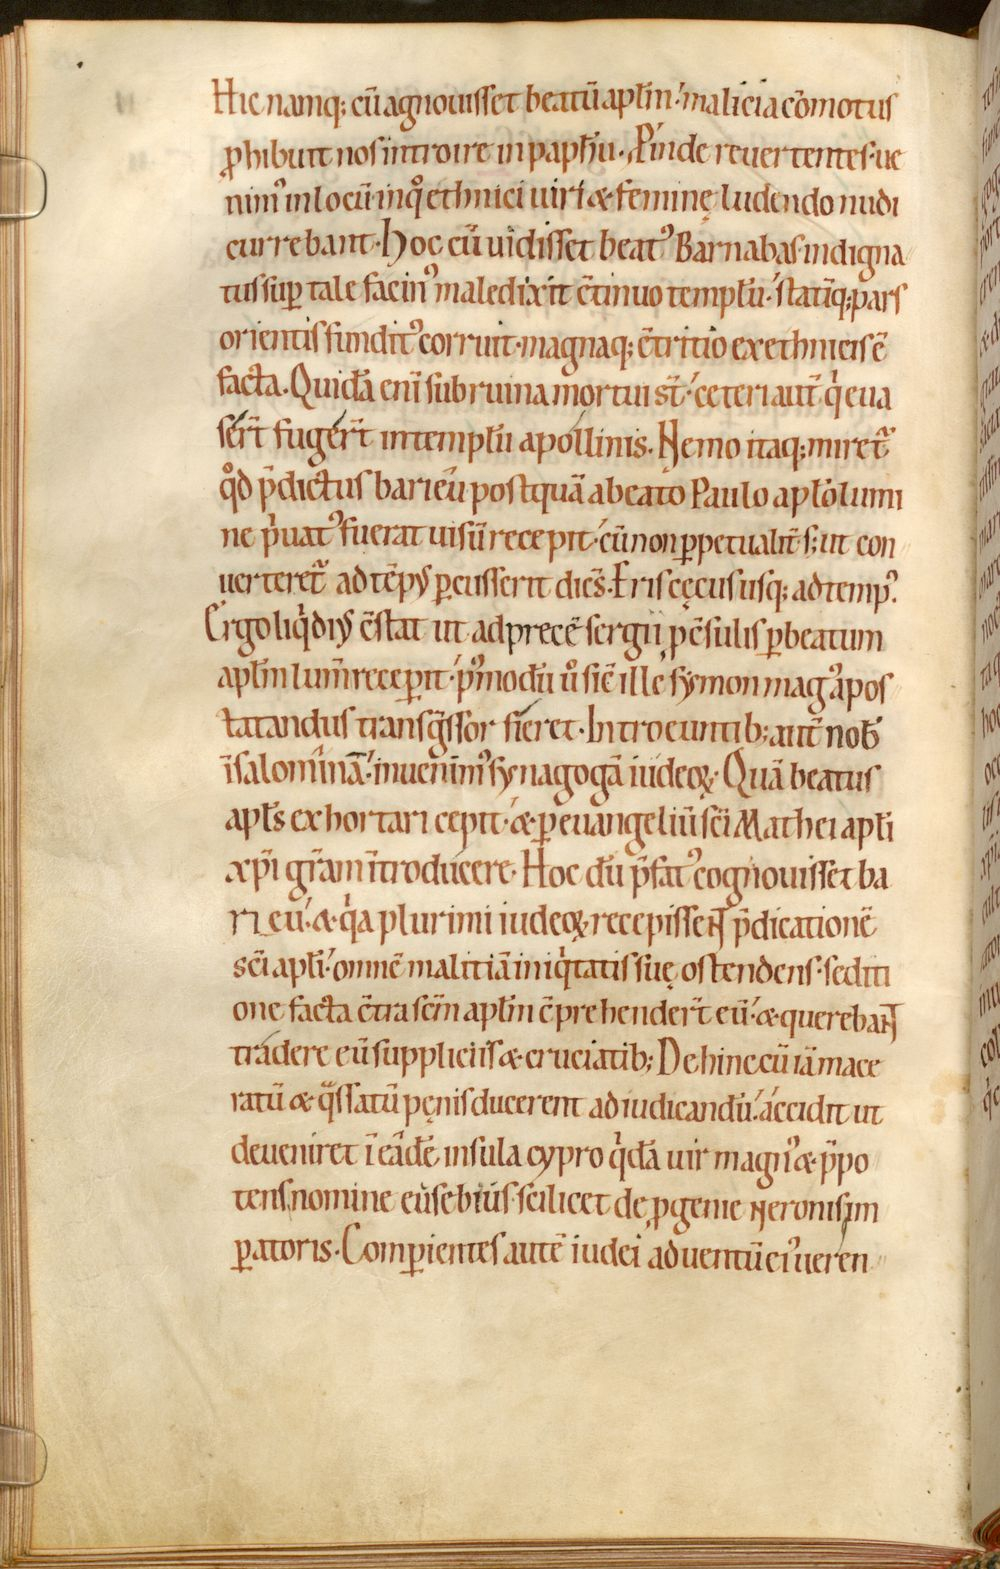 Hic namq; cū agnouisset beatū apłm ́malicia cōmotus
ꝓhibuit nos introire in paphū. Pinde reuertentes ue
nimꝰ in locū in qͦ ethnici uiri & feminę ludendo nudi
currebant. Hoc cū uidisset beatꝰ Barnabas indigna
tus suꝑ tale facinꝰ maledixit c̄tinuo templū. statīq; pars
orientis funditꝰ corruit. magnaq; c̄tritio ex ethnicis ē
facta. Quidā eni sub ruina mortui st̄. ceteri aut̄ qͥ eua
sert̄ fugert̄ in templū apollinis. Nemo itaq; miret᷑
qͦd p̄dictus barieū postquā a beato Paulo aplo lumi
ne pͥuatꝰ fuerat uisū recepit. cū non ꝑpetualit̄ s; ut con
uerteret᷑ ad tēpꝰ ꝑcusserit dic̄s. Eris cęcus usq; ad tempꝰ.
Ergo liqͥdiꝰ c̄stat ut ad precē sergii p̄c̄sulis ꝑ beatum
apłm lum̄ receperit. pꝰmodū uͦ sic ille symon magꝰ apos
tatandus transgssor fieret. Introeuntib; aut̄ nob̄
ī salominā. inuenimꝰ synagogā iudeoꝝ. Quā beatus
apłs exhortari cepit. & ꝑ euangeliū sc̄i Mathei apłi
xp̄i gr̄am ītroducere. Hoc dū p̄fatꝰ cognouisset ba
rieu. & qͥa plurimi iudeoꝝ recepissent p̄dicationē
sc̄i apłi. omnē malitiā iniqͥtatis suę ostendens. sediti
one facta c̄tra sc̄m apłm c̄prehendert̄ eū. & querebant
tradere eū suppliciis & cruciatib; Dehinc cū iā mace
ratū & qͣssatū pęnis ducerent ad iudicandū. accidit ut
deueniret ī eadē insula cypro qͥdā uir magnꝰ & p̄po
tens nomine eusebius. scilicet de ꝓgenie neronis im
ꝑatoris. Comꝑientes autē iudei aduentū eiꝰ ueren